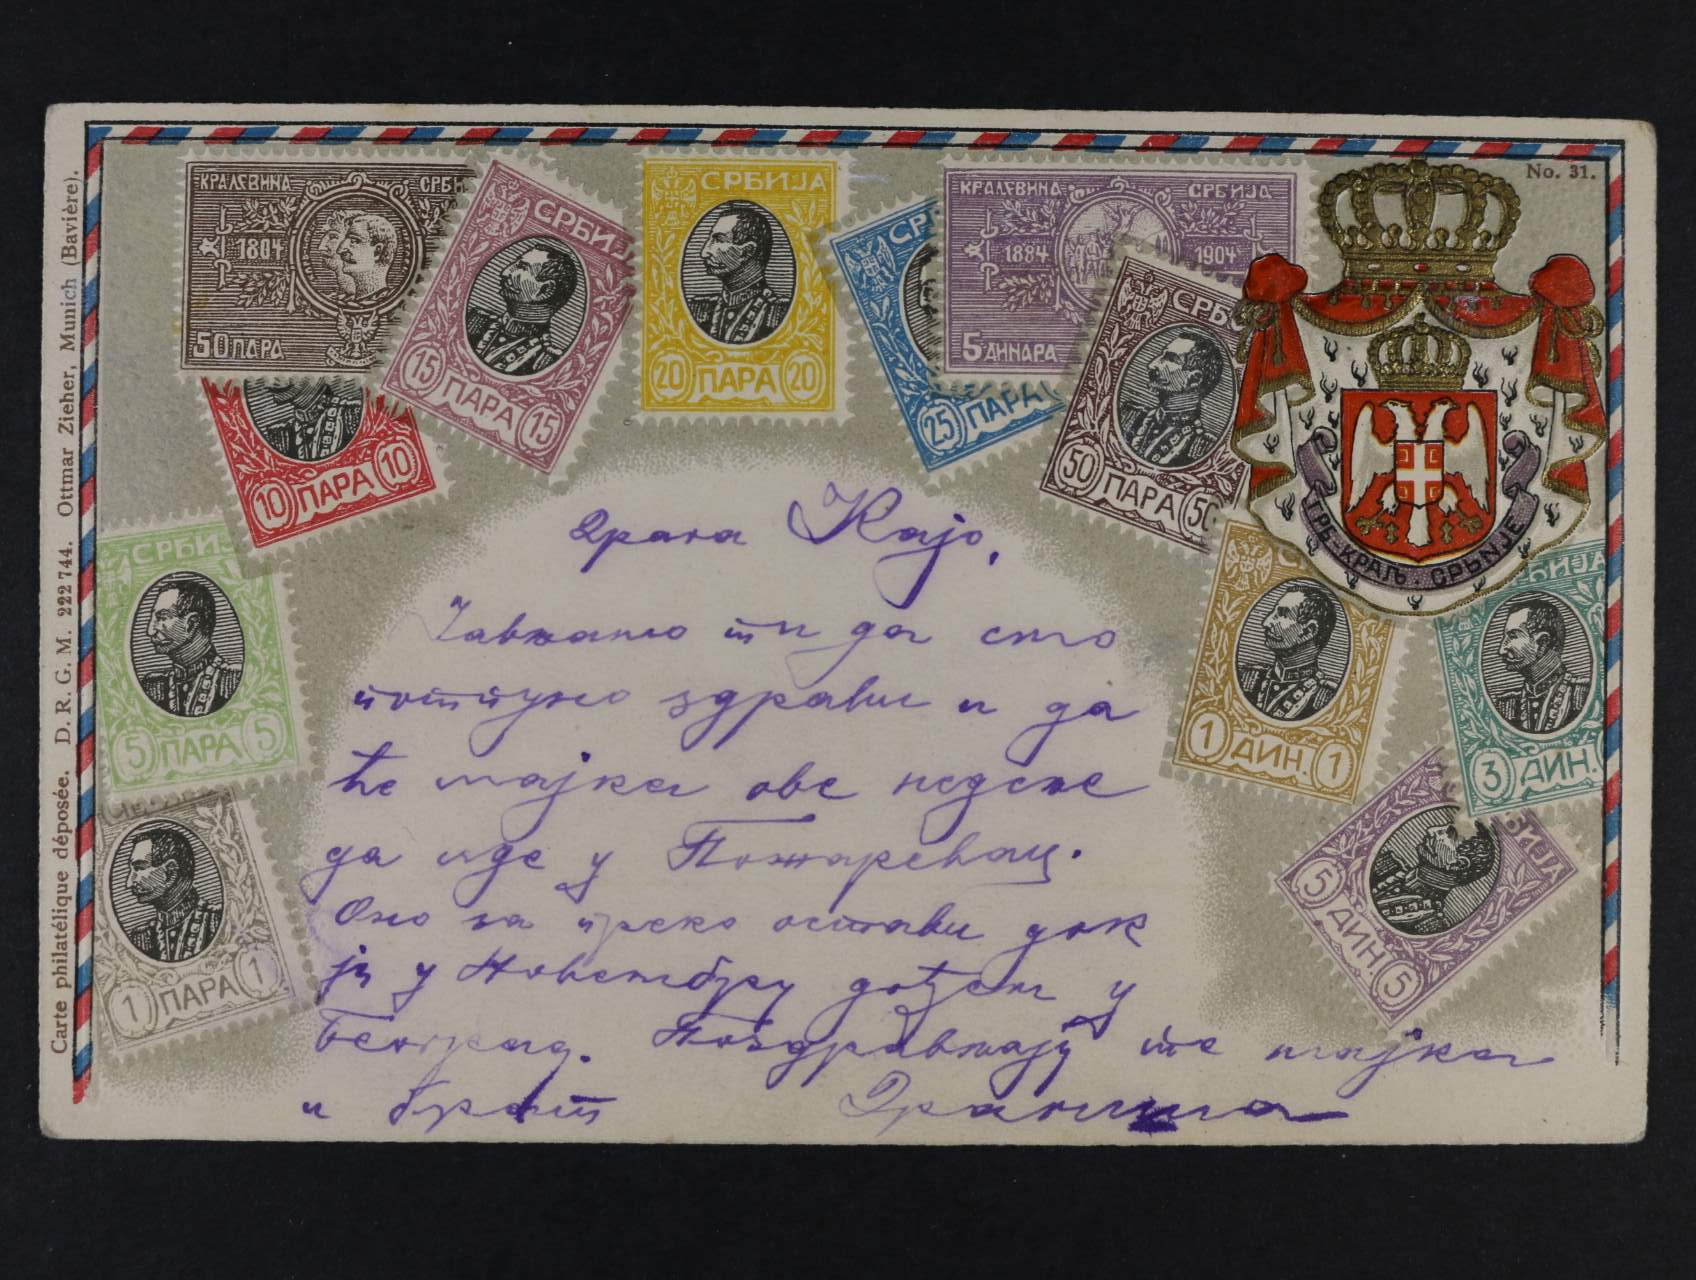 No. 31.
КРАЛЕВИНА СРБИ
1884
50 ПАРА
СРБИЈ
15 ПАРА 15
СРБИЈА
20 ПАРА 20
СР
25 ПАРА
КРАЛЕВИНА СРБИЈА
1884 1904
5 ДИНАРА
СРБ
50 ПАРА 50
10 ПАРА 10
СРБИЈ
5 ПАРА 5
1 ПАРА 1
1 ДИН. 1
РБИЈА
3 ДИН.
БИЈА
5 ДИН. 5
КРАЉ СРБИЈЕ
Драга Кајо,
Јављамо ти да смо
потпуно здрави и да
ће мајка ове недеље
да иде у Пожаревац.
Оно за преко остави док
ја у Новембру дођем у
Београд. Поздрављају те мајка
и брат Драгиша
Carte philatélique déposée. D. R. G. M. 222 744. Ottmar Zieher, Munich (Bavière).